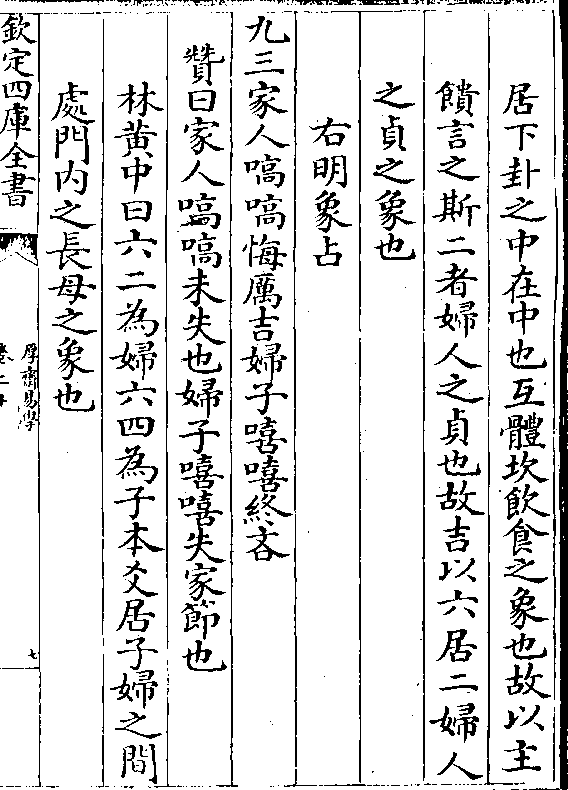 居下卦之中在中也互體坎飲食之象也故以主
饋言之斯二者婦人之貞也故吉以六居二婦人
之貞之象也
右明象占
九三家人嗃嗃悔厲吉婦子嘻嘻終吝
贊曰家人嗃嗃未失也婦子嘻嘻失家節也
林黃中曰六二為婦六四為子本爻居子婦之間
處門内之長母之象也
欽定四庫全書
厚齋易學
七